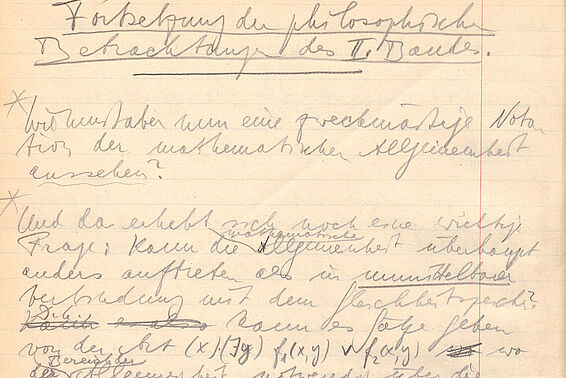 Fortsetzung der philosophischen
Betrachtungen des II. Bandes.
Wie muß aber nun eine zweckmäßige Nota-
tion der mathematischen Allgemeinheit
aussehen?
Und da erhebt sich noch eine wichtige
mathematische
Frage: Kann die Allgemeinheit überhaupt
anders auftreten als in unmittelbarer
Verbindung mit dem Gleichheitszeichen?
D.h.
kann es Sätze geben
von der Art (x):(∃y) f₁(x,y) ∨ f₂(x,y) wo
der Allgemeinheit über die